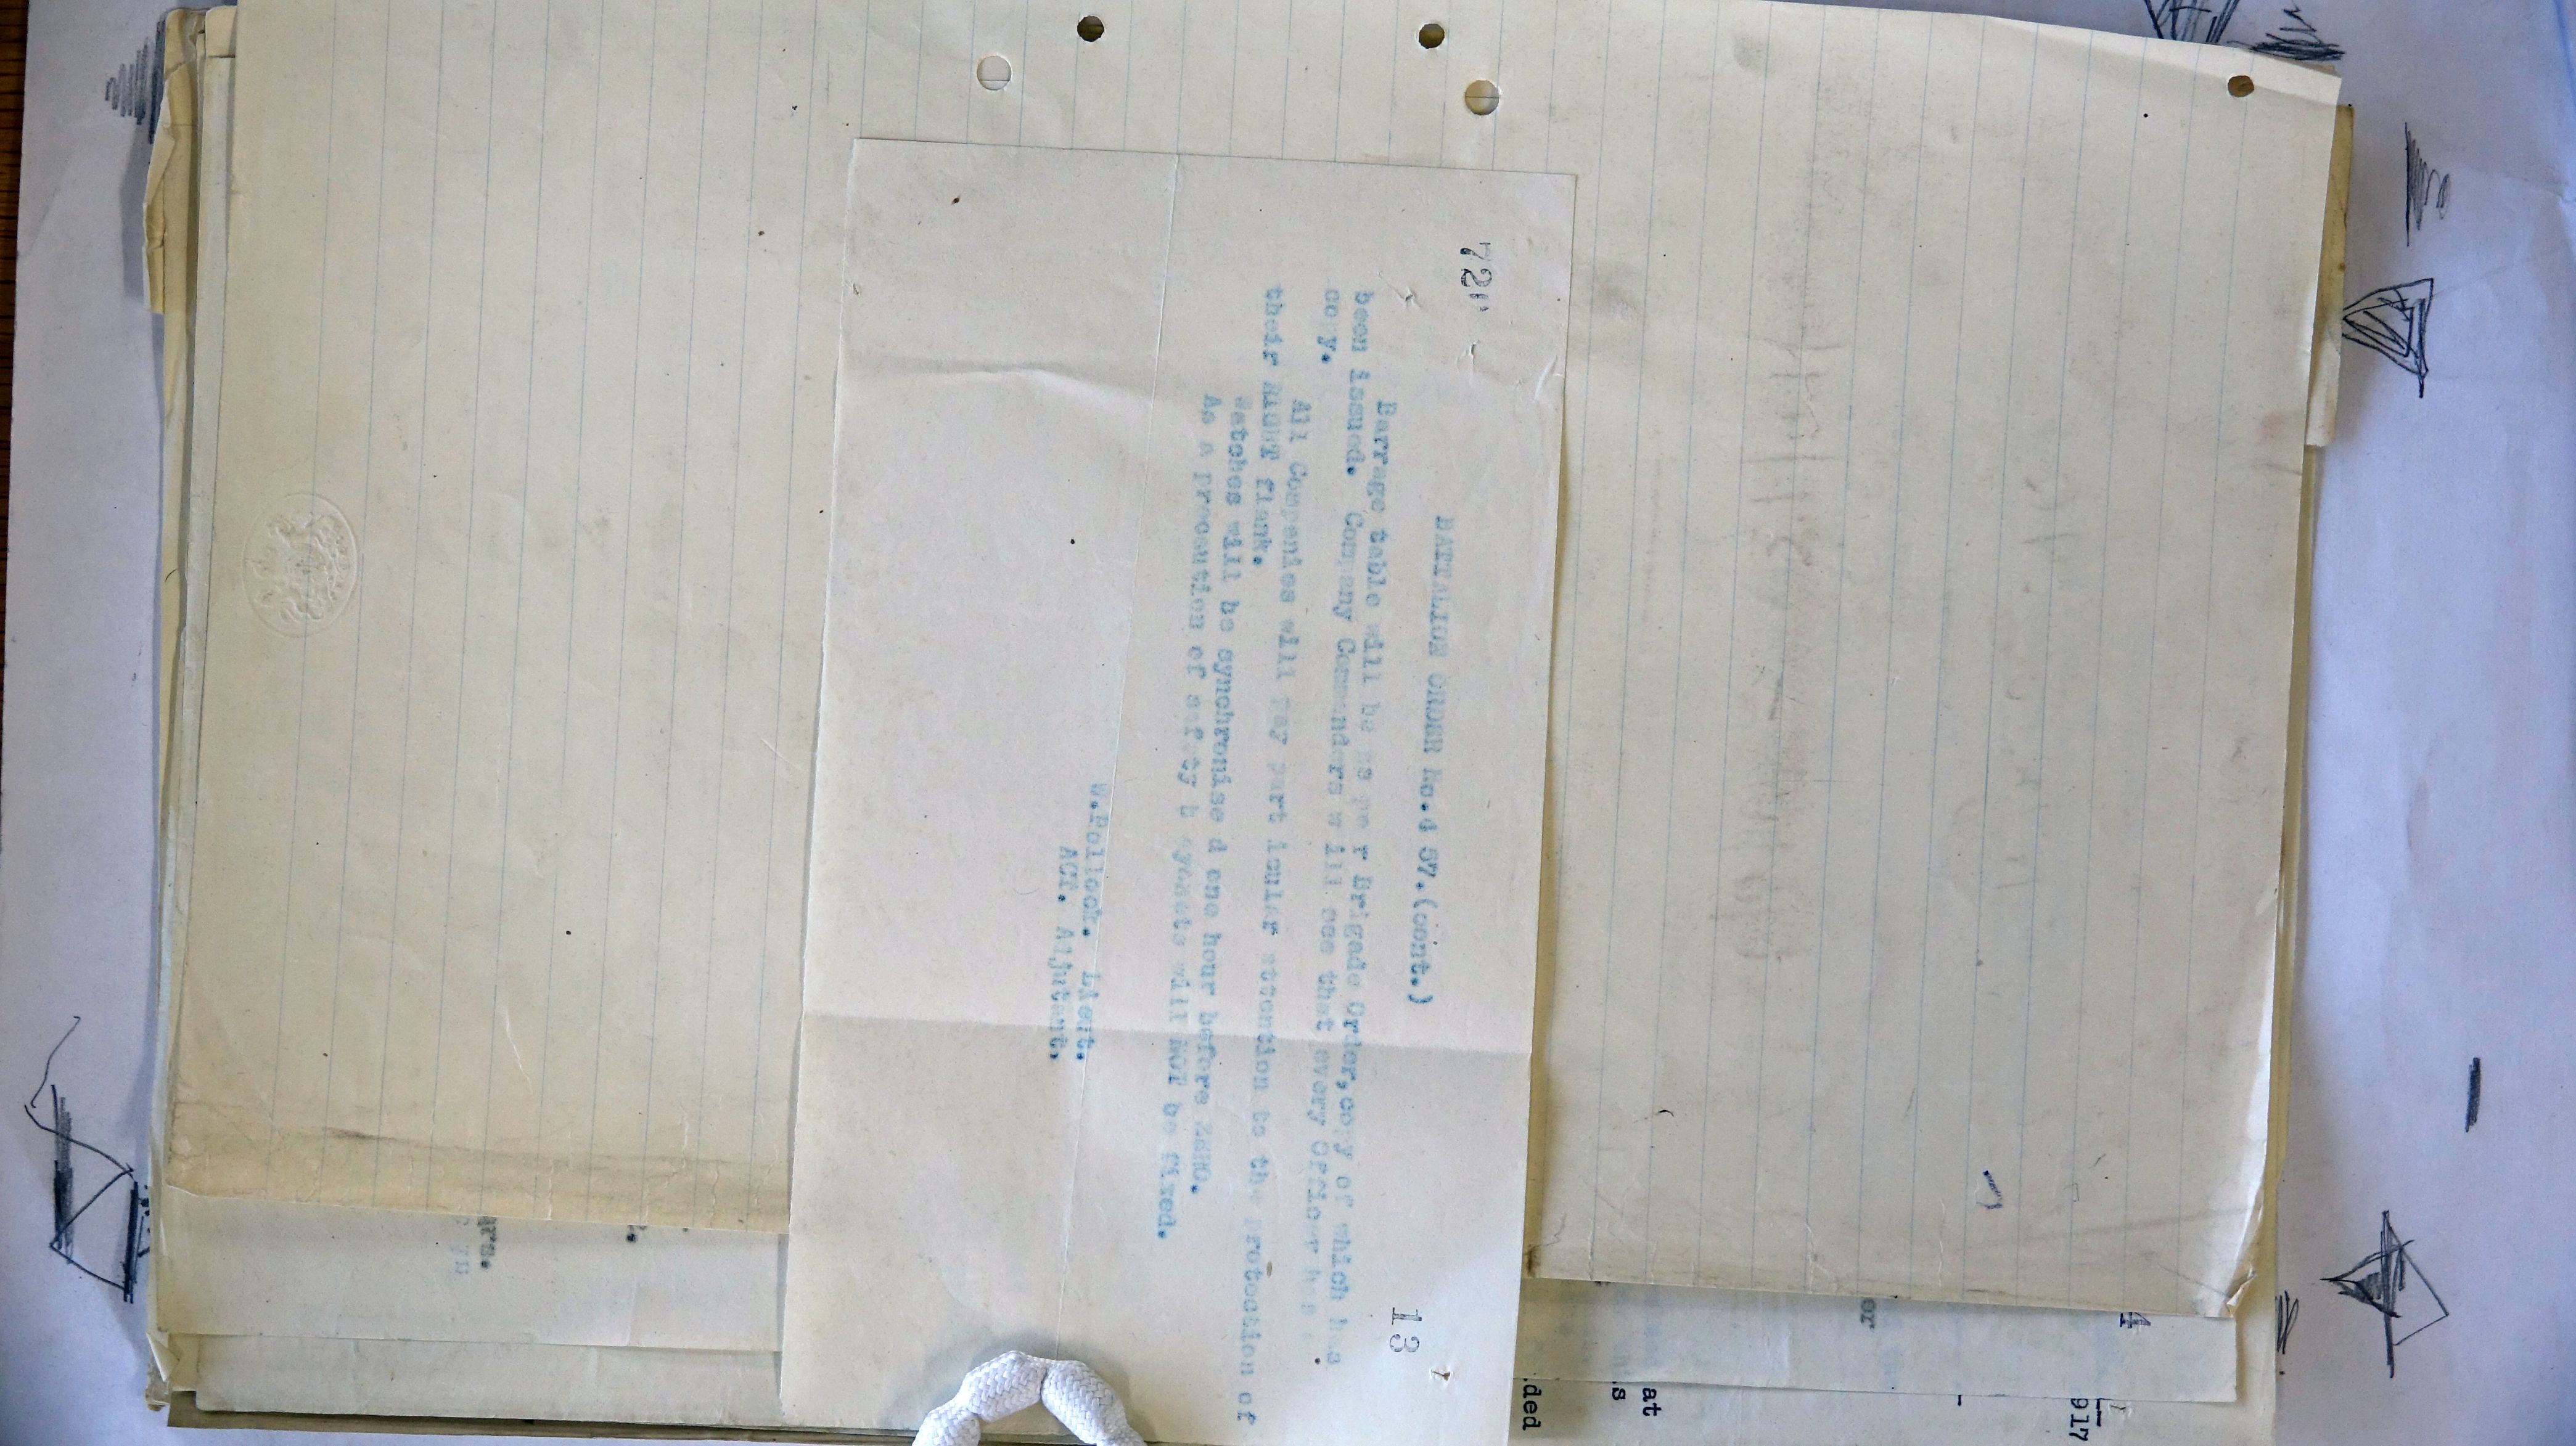 72
13
BATTALION ORDER No.4 57.(cont.)
Barrage table will be as per Brigade Order,copy of which has
been issued. Company Commanders will see that every Officer has
copy.
All Companies will pay part icular attention to the protection of
their RIGHT flank.
Watches will be synchronise d one hour before ZERO.
As a precaution of safety b ayonets will NOT be fixed.
W.Pollock. Lieut.
ACT. Adjutant.
4
917
or
at
s
ded